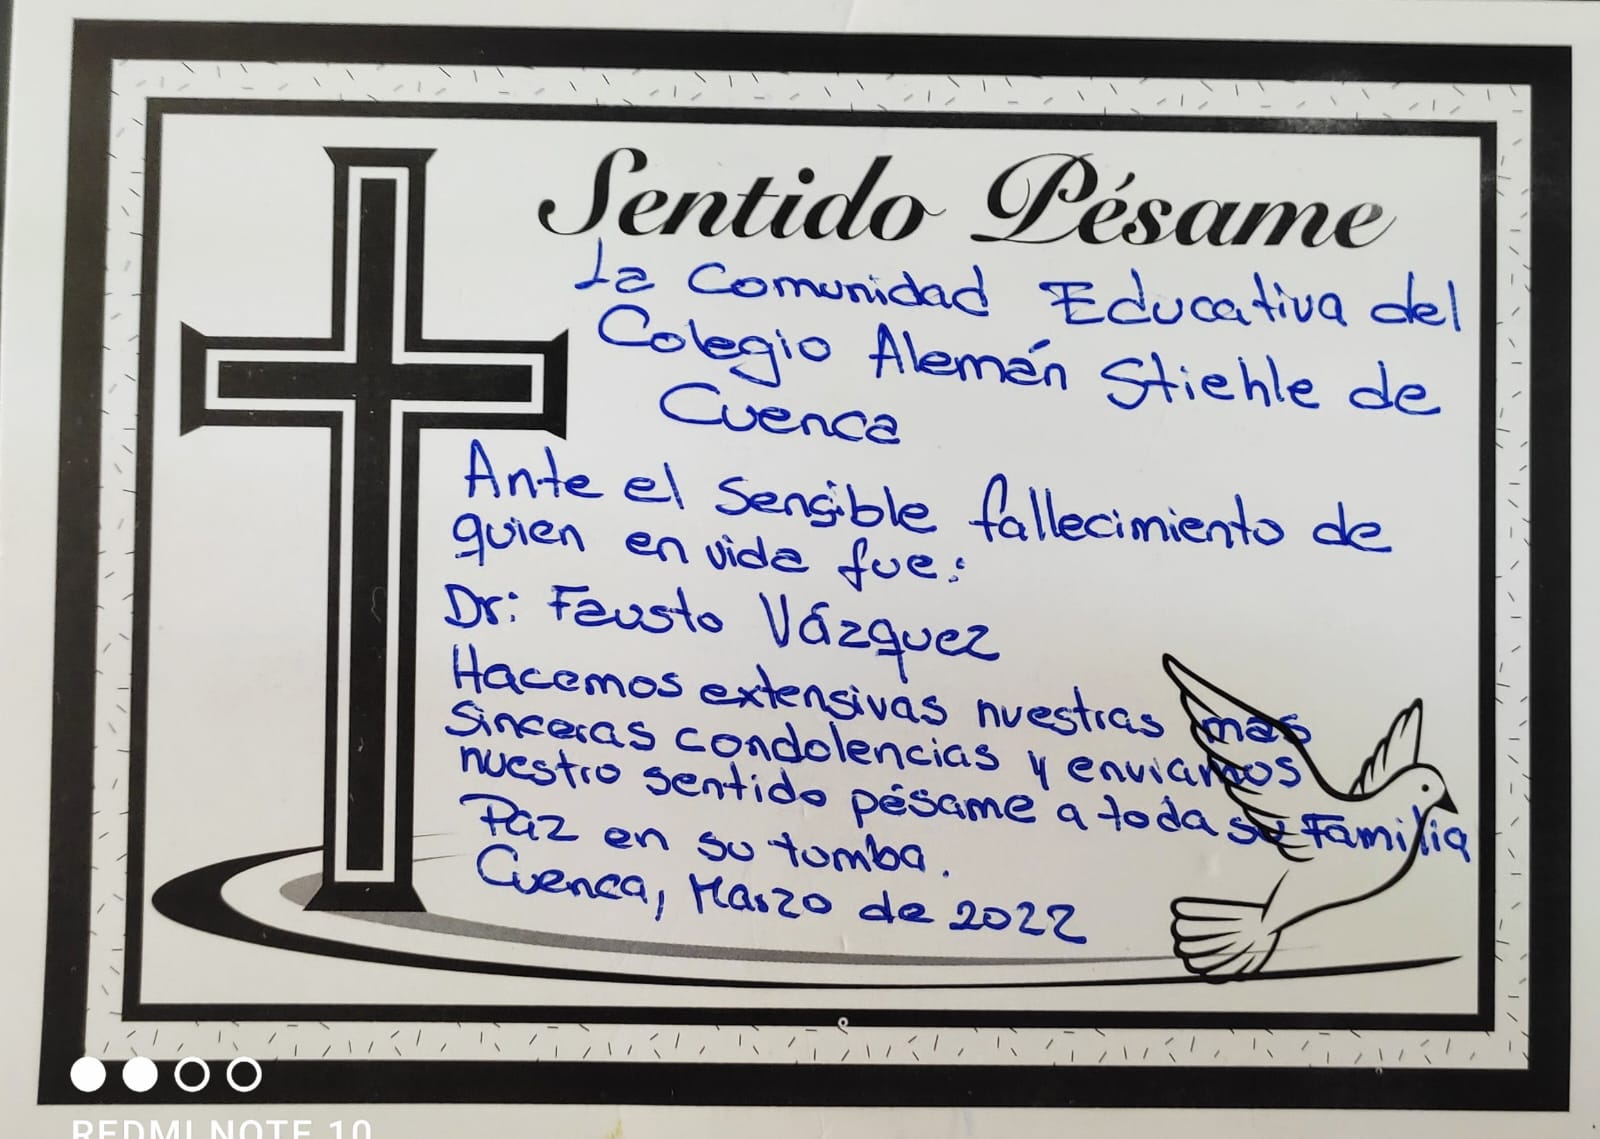 Sentido Pésame
La Comunidad Educativa del
Colegio Alemán Stiehle de
Cuenca
Ante el Sensible fallecimiento de
quien en vida fue:
Dr: Fausto Vázquez
Hacemos extensivas nuestras mas
sinceras condolencias y enviamos
nuestro sentido pésame a toda su Familia
Paz en su tumba.
Cuenca, Marzo de 2022
REDMI NOTE 10